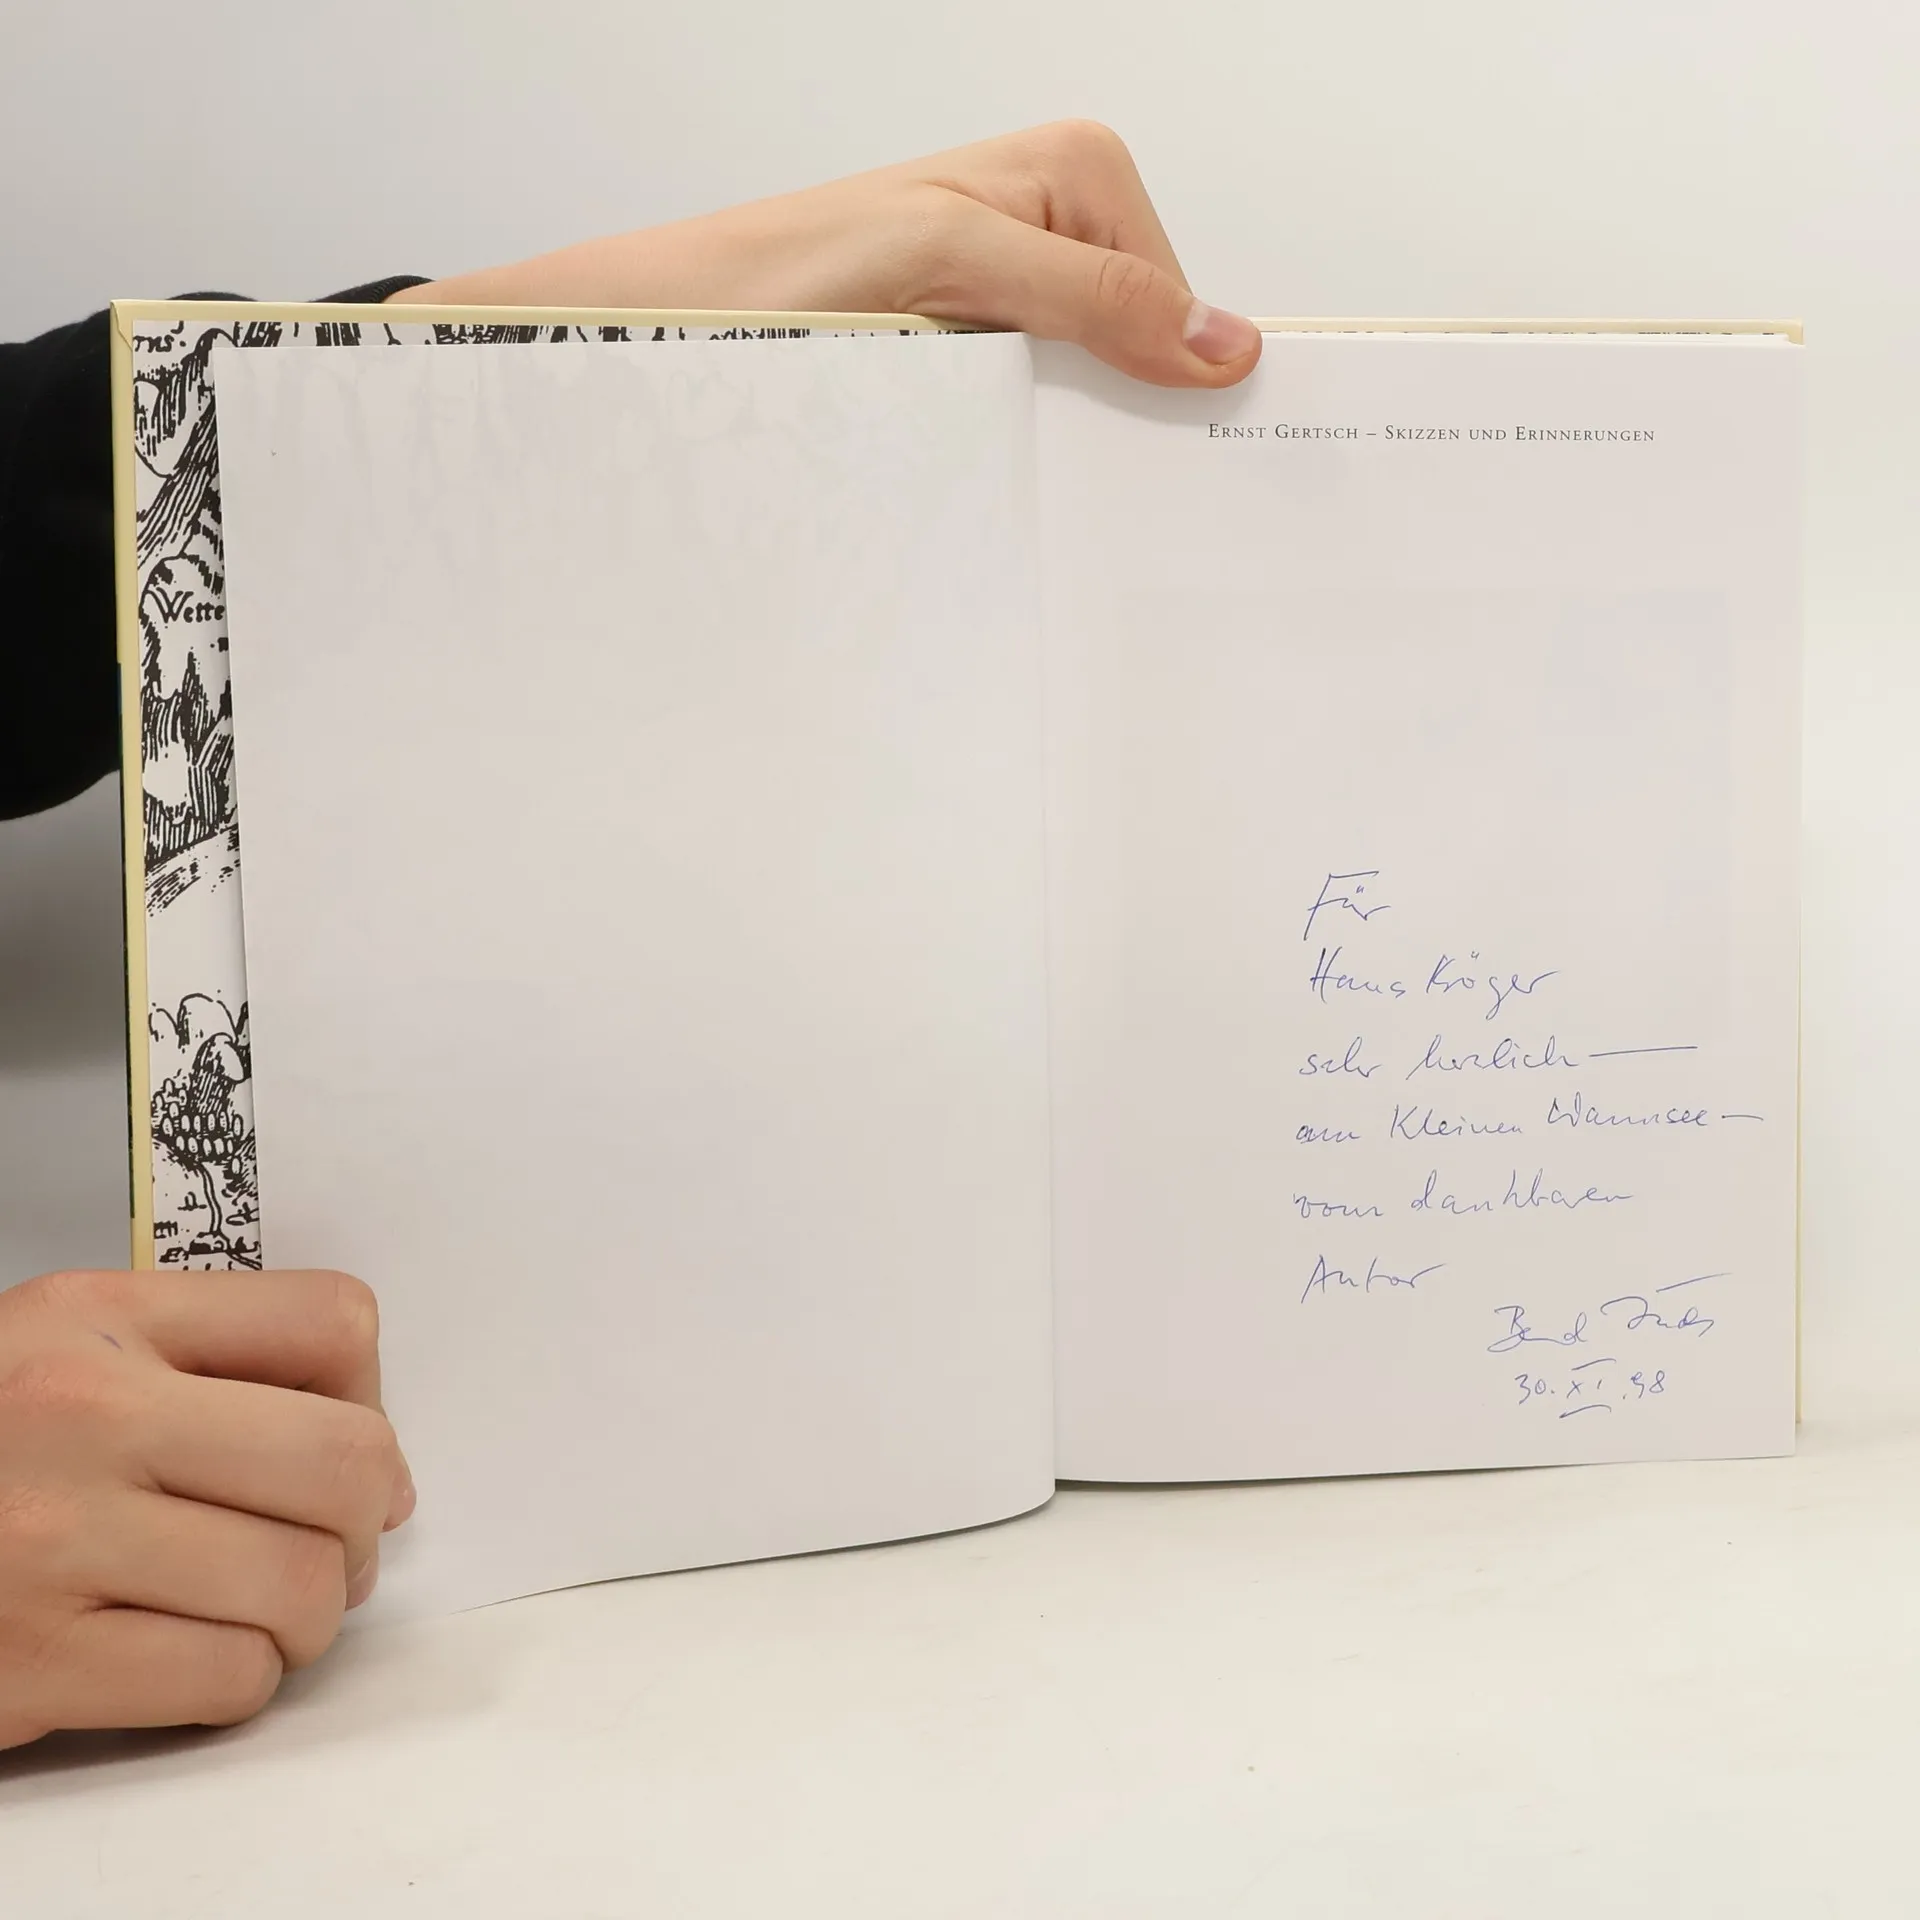 rns.
Wette
ERNST GERTSCH – SKIZZEN UND ERINNERUNGEN
Für
Hans Kröger
sehr herzlich —
am Kleinen Wannsee —
vom dankbaren
Autor
Bernd
30. XI. 98